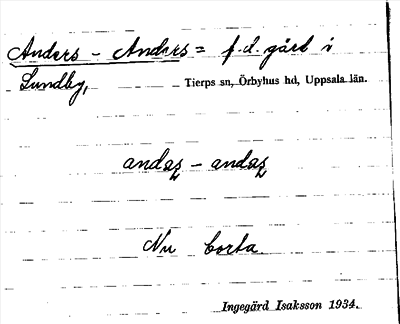 Anders - Anders = f.d. gård i
Lundby, Tierps sn, Örbyhus hd, Uppsala län.
andaʂ - andaʂ
Nu borta.
Ingegärd Isaksson 1934.